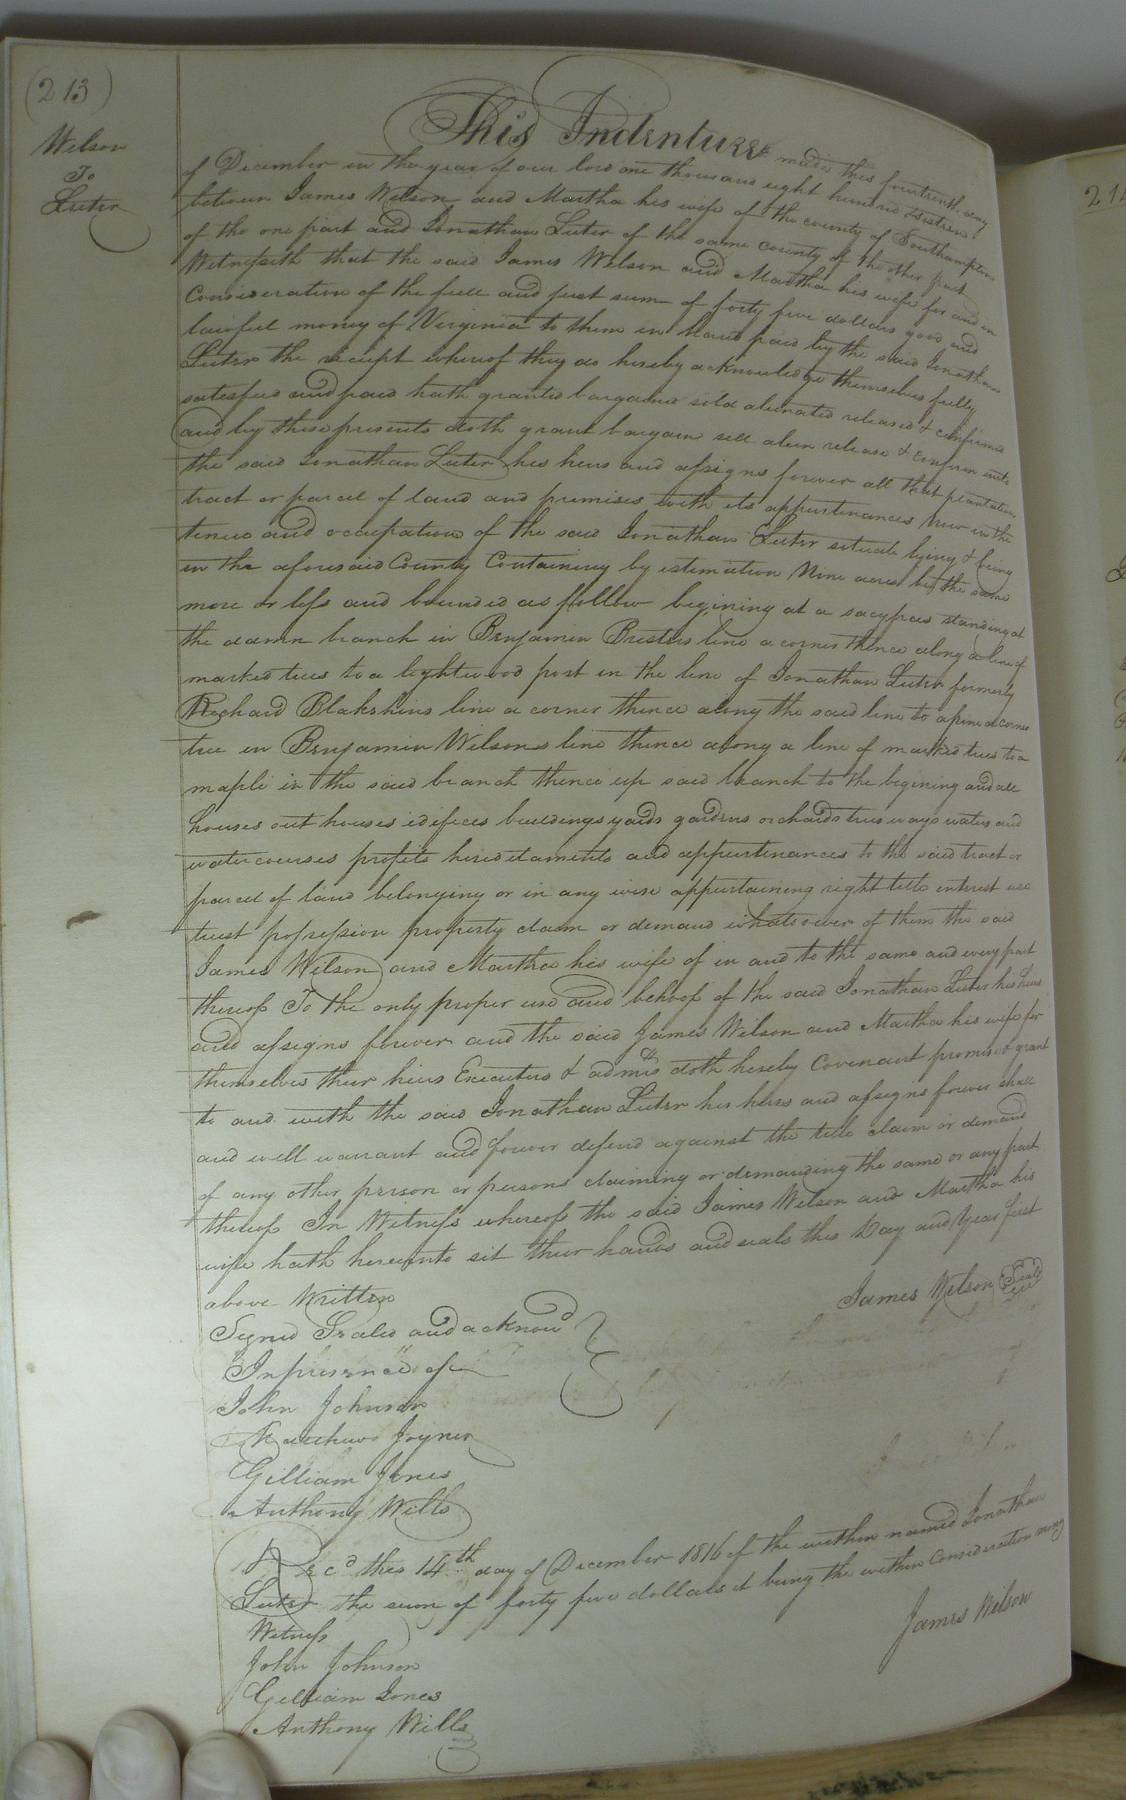 (213)
Wilson
To
Luter
This Indenture made this fourteenth day
of December in the year of our lord one thousand eight hundred & sixteen
between James Wilson and Martha his wife of the county of Southampton
of the one part and Jonathan Luter of the same county of the other part
Witnesseth that the said James Wilson and Martha his wife for and in
Consideration of the full and just sum of forty five dollars good and
lawful money of Virginia to them in hand paid by the said Jonathan
Luter the receipt whereof they do hereby acknowledge themselves fully
satesfied and paid hath granted bargained sold alienated released & confirmed
and by these presents doth grant bargain sell alien release & confirm unto
the said Jonathan Luter his heirs and assigns forever all that plantation
tract or parcel of land and premises with its appurtenances now in the
tenue and occupation of the said Jonathan Luter situate lying & being
in the aforesaid County Containing by estimation Nine acres be the same
more or less and bounded as follow begining at a sacypres standing at
the damn branch in Benjamin Bresters line a corner thence along a line of
marked trees to a lightwood post in the line of Jonathan Luter formerly
Richard Blakshins line a corner thence along the said line to a pine a corner
tree in Benjamin Wilsons line thence along a line of marked trees to a
maple in the said branch thence up said branch to the begining and all
houses out houses edifices buildings yards gardens orchards trees ways waters and
water courses profits heredetaments and appurtenances to the said tract or
parcel of land belonging or in any wise appurtaining right title interest use
trust possession property claim or demand whatsoever of them the said
James Wilson and Martha his wife of in and to the same and every part
thereof To the only proper use and behoof of the said Jonathan Luter his heirs
and assigns forever and the said James Wilson and Martha his wife for
themselves their heirs Executers & admrs doth hereby Covenant promise & grant
to and with the said Jonathan Luter his heirs and assigns forever shall
and will warrant and forever defend against the title claim or demand
of any other person or persons claiming or demanding the same or any part
thereof In Witness whereof the said James Wilson and Martha his
wife hath hereunto set their hands and seals this Day and Year first
above Written
James Wilson Seal
Signed Sealed and acknowd
In presence of
John Johnson
Matthew Joyner
Gilliam Jones
Anthony Wills
Recd this 14th day of December 1816 of the within named Jonathan
Luter the sum of forty five dollars it being the within Consideration money
James Wilson
Witness
John Johnson
Gilliam Jones
Anthony Wills